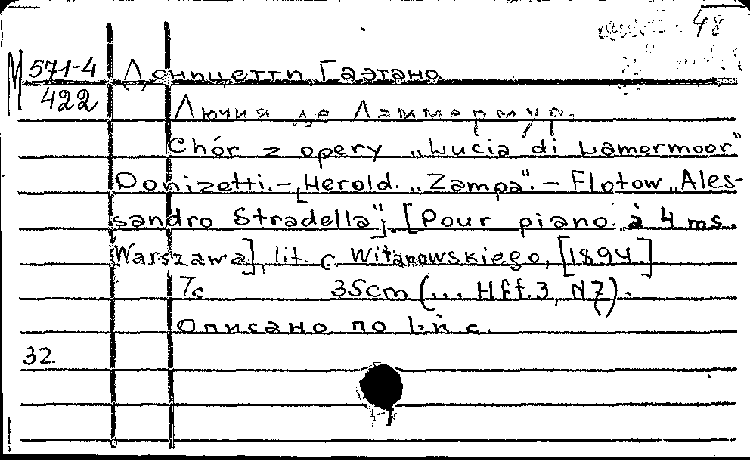 48
М 571-4 Доницетти, Гаэтано.
422 Лючия де Ламмермур.
Chór z opery „Lucia di Lamermoor"
Donizetti.–[Herold. „Zampa". – Flotow „Ales-
sandro Stradella"]. [Pour piano à 4 ms.
Warszawa], lit. C. Witanowskiego, [1894.]
7c 35cm (... Hft.3, N7).
Описано по 1-й с.
32